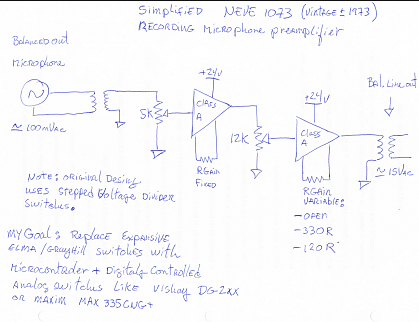 Simplified NEVE 1073 (vintage ± 1973)
Recording Microphone preamplifier
Balanced out
Microphone
≃ 100mVAC
5K
+24V
CLASS
A
RGAIN
FIXED
12K
+24V
CLASS
A
RGAIN
VARIABLE:
- OPEN
- 330R
- 120R
Bal. Line out
≃ 15VAC
NOTE: original Desing
uses stepped Voltage Divider
Switches.
MY Goal: Replace Expansive
ELMA/Grayhill switches with
Microcontroler + Digitaly Controlled
Analog switches Like Vishay DG-2XX
OR MAXIM MAX335CNG+